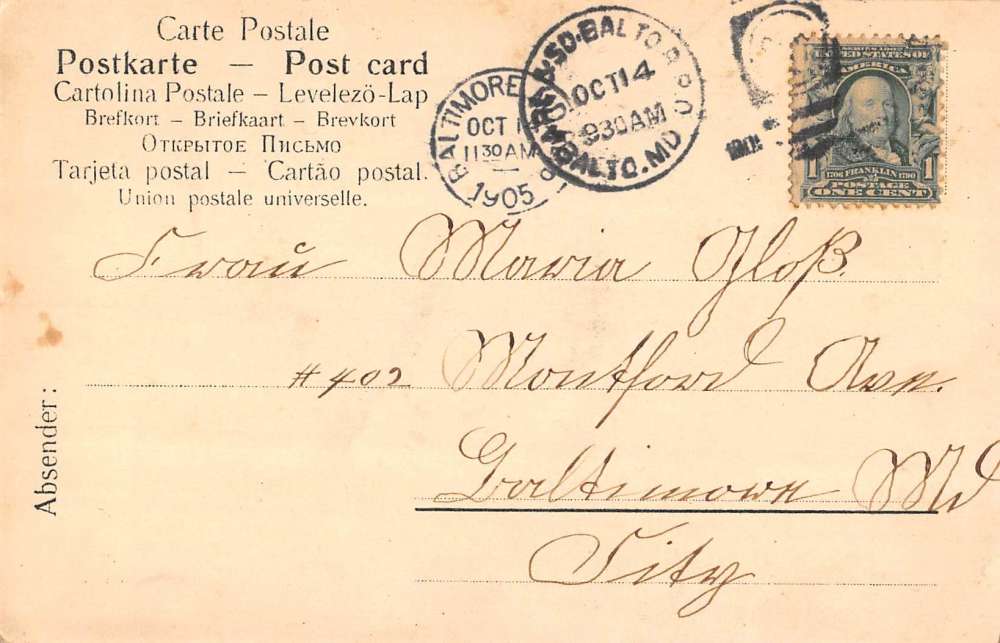 Carte Postale
Postkarte — Post card
Cartolina Postale – Levelező-Lap
Brefkort – Briefkaart – Brevkort
Открытое Письмо
Tarjeta postal – Cartão postal.
Union postale universelle.
BALTIMORE
OCT
11 30 AM
1905
BALTO. R.P.O.
OCT 14
930AM
BALTO. MD
SERIES 1902
UNITED STATES OF
AMERICA
1 1706 FRANKLIN 1790 1
POSTAGE
ONE CENT
Frau Maria Gloß.
#402 Montford Ave.
Baltimore Md
City
Absender: